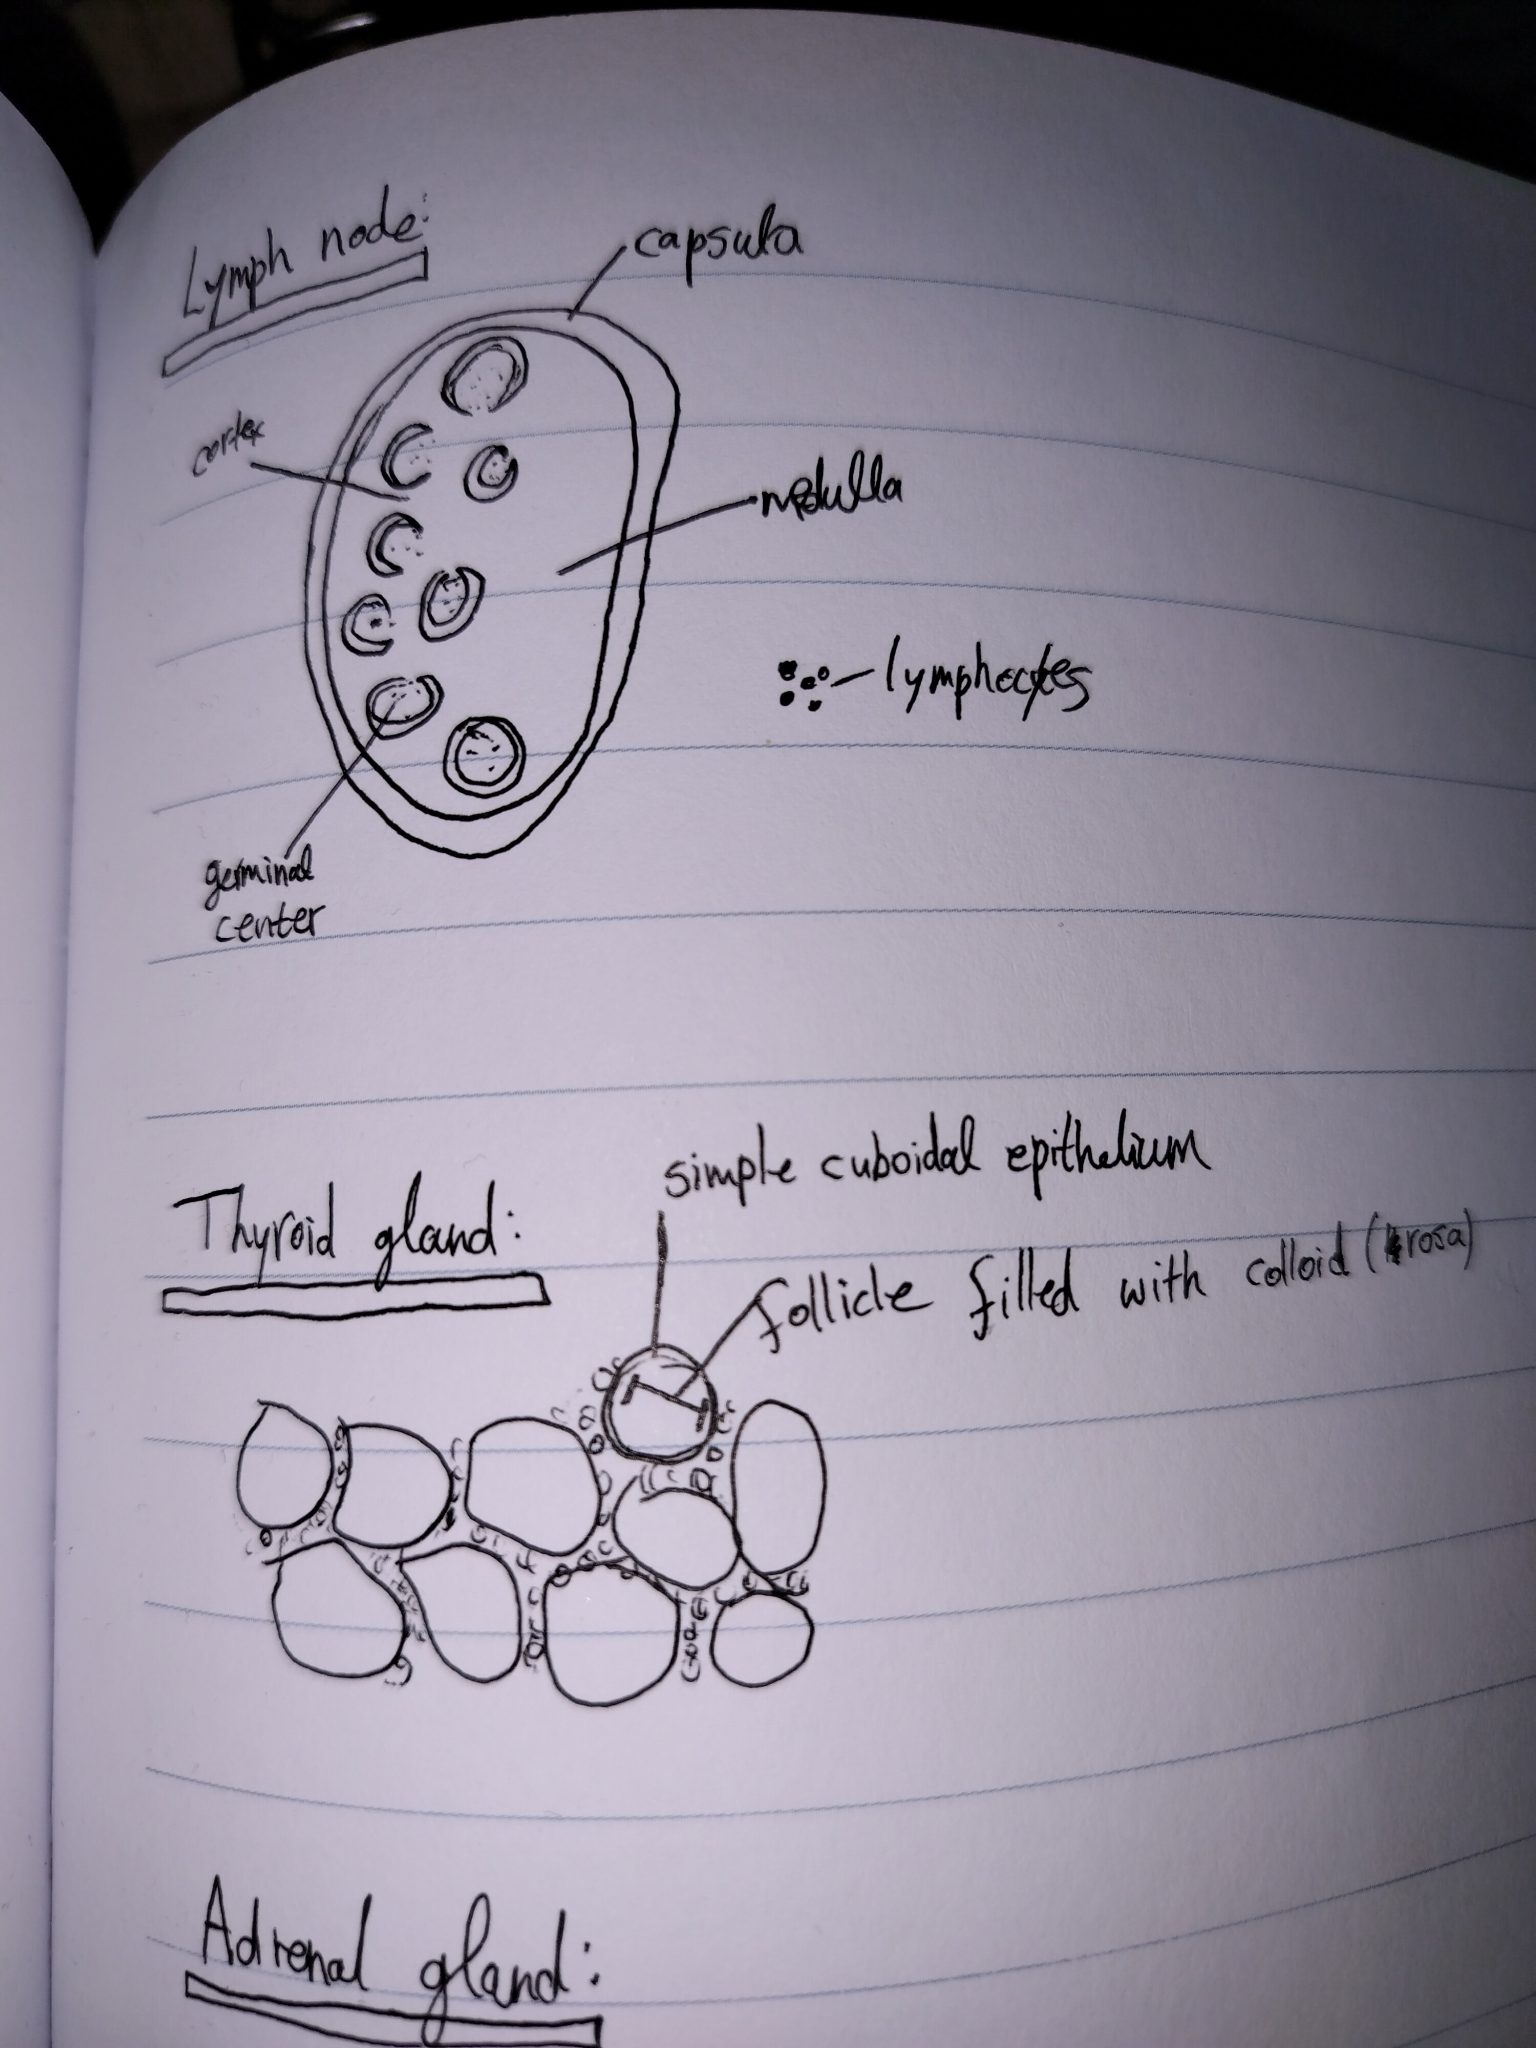 Lymph node:
capsula
cortex
medulla
lymphocytes
germinal
center
simple cuboidal epithelium
Thyroid gland:
follicle filled with colloid (rosa)
Adrenal gland: